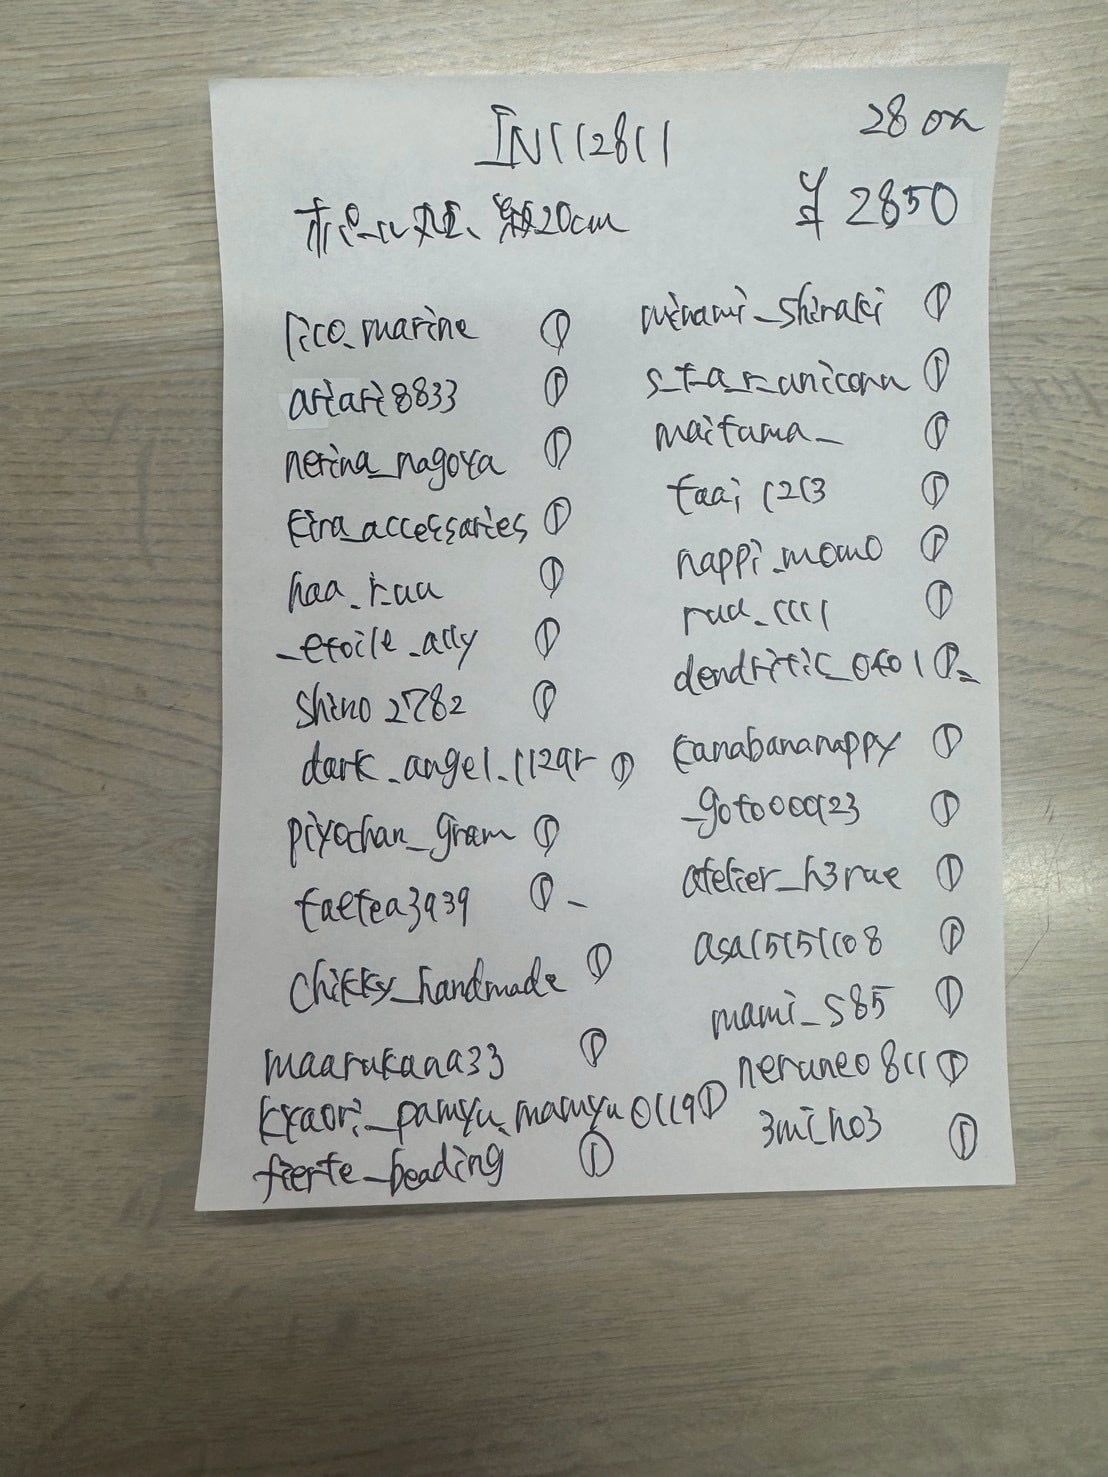 IN112811
28 ok
¥2850
ボール型、約20cm
lico_marine ①
ariari8833 ①
nerina_nagoya ①
kira_accessaries ①
haa_r.uu ①
_etoile_ally ①
shino2782 ①
dark_angel.1129r ①
piyochan_gram ①
taetea3939 ①
chikky_handmade ①
maarukana33 ①
kyaori_pamyu_mamyu0119 ①
fierte_beading ①
minami_shiraki ①
s_t_a_r_unicorn ①
maitama_ ①
taai1213 ①
nappi_momo ①
ruu_1111 ①
dendritic_0401 ①
kanabananappy ①
_goto000923 ①
atelier_h3rue ①
asa15151108 ①
mami_s85 ①
nerune0811 ①
3miho3 ①